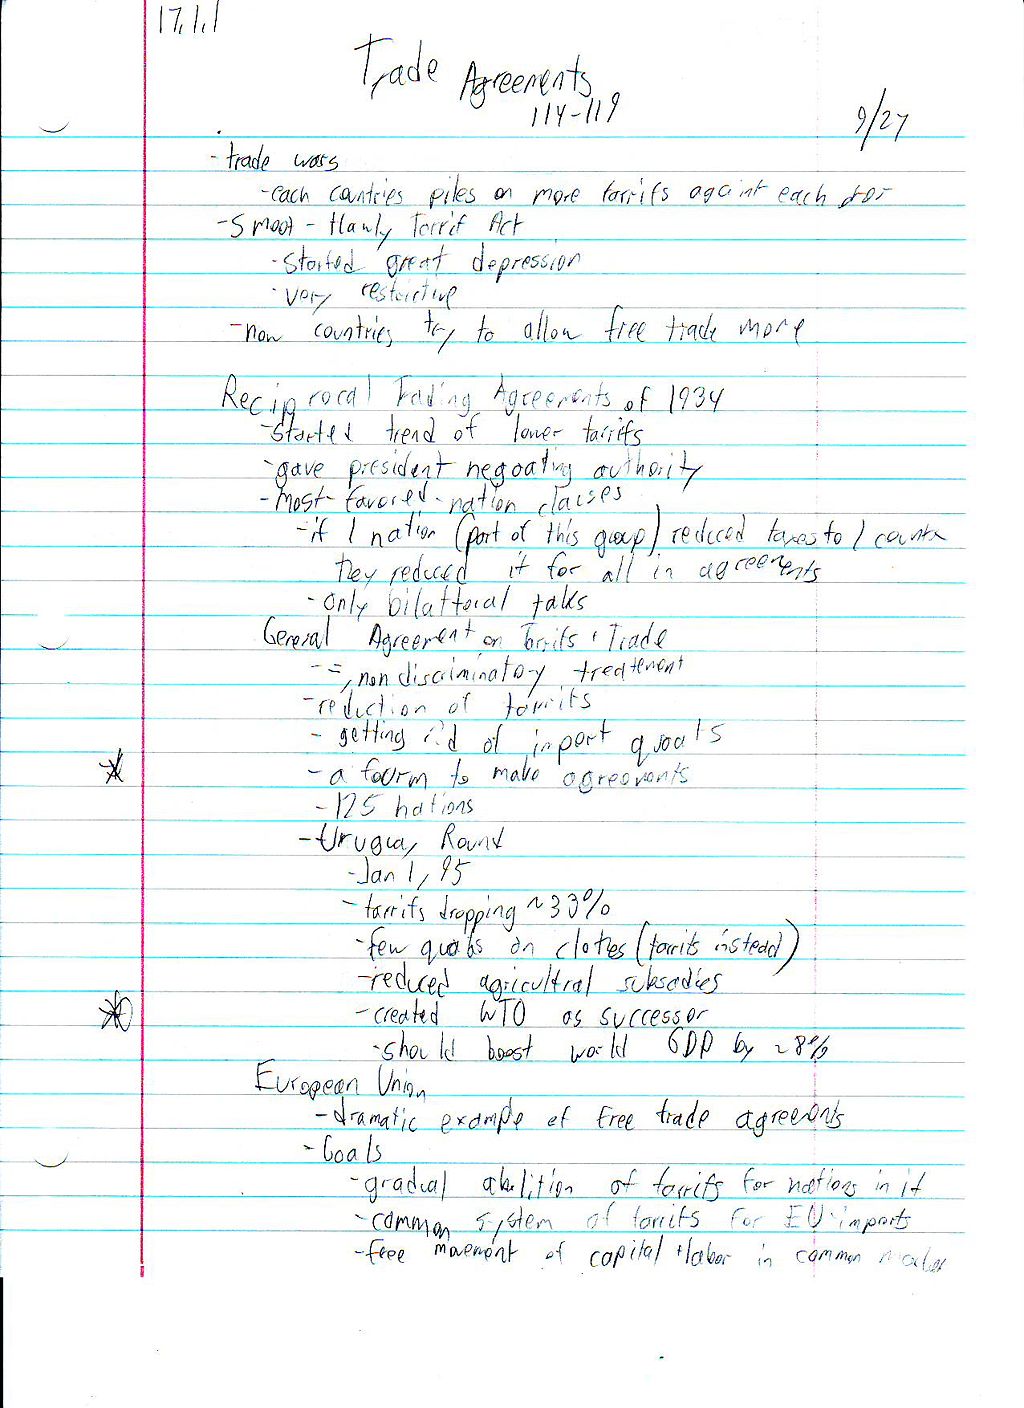 17.1.1
Trade Agreements
114-119
9/27
- trade wars
- each countries piles on more tarrifs againt each
- Smoot - Hawly Tarrif Act
- started great depression
- very restrictive
- now countries try to allow free trade more
Reciprocal Trading Agreements of 1934
- started trend of lower tarrifs
- gave president negoating authority
- most-favored-nation clauses
- if 1 nation (part of this group) reduced taxes to 1
they reduced it for all in agreements
- Only bilatteral talks
General Agreement on Tarrifs + Trade
- =, non discriminatory treatement
- reduction of tarrifs
- getting rid of import quoats
- a fourm to make agreements
- 125 nations
- Uruguay Round
- Jan 1, 95
- tarrifs dropping ~33%
- few quoats on clothes (tarrifs instead)
- reduced agricultral subsadies
- created WTO as successor
- should boost world GDP by ~8%
European Union
- dramatic example of free trade agreements
- Goals
- gradual abolition of tarrifs for nations in it
- common system of tarrifs for EU imports
- free movement of capital + labor in common